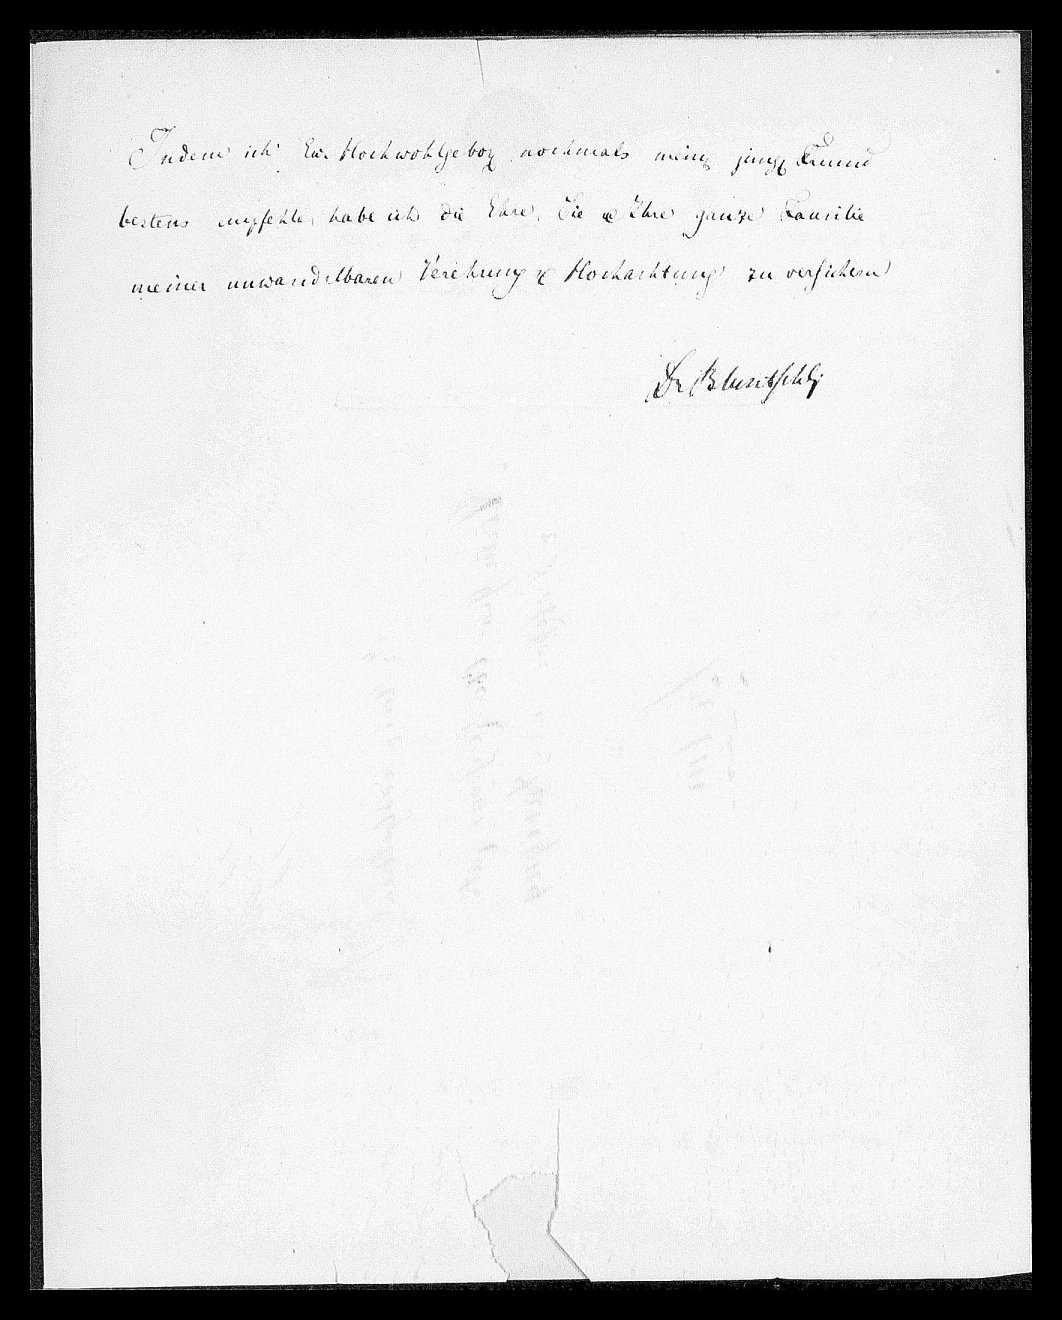 Indem ich Ew. Hochwohlgebor nochmals mein jung Freund
bestens empfehle, habe ich die Ehre, Sie & Ihre ganze Familie
meiner unwandelbaren Verehrung & Hochachtung zu versichern
Dr Bluntschli